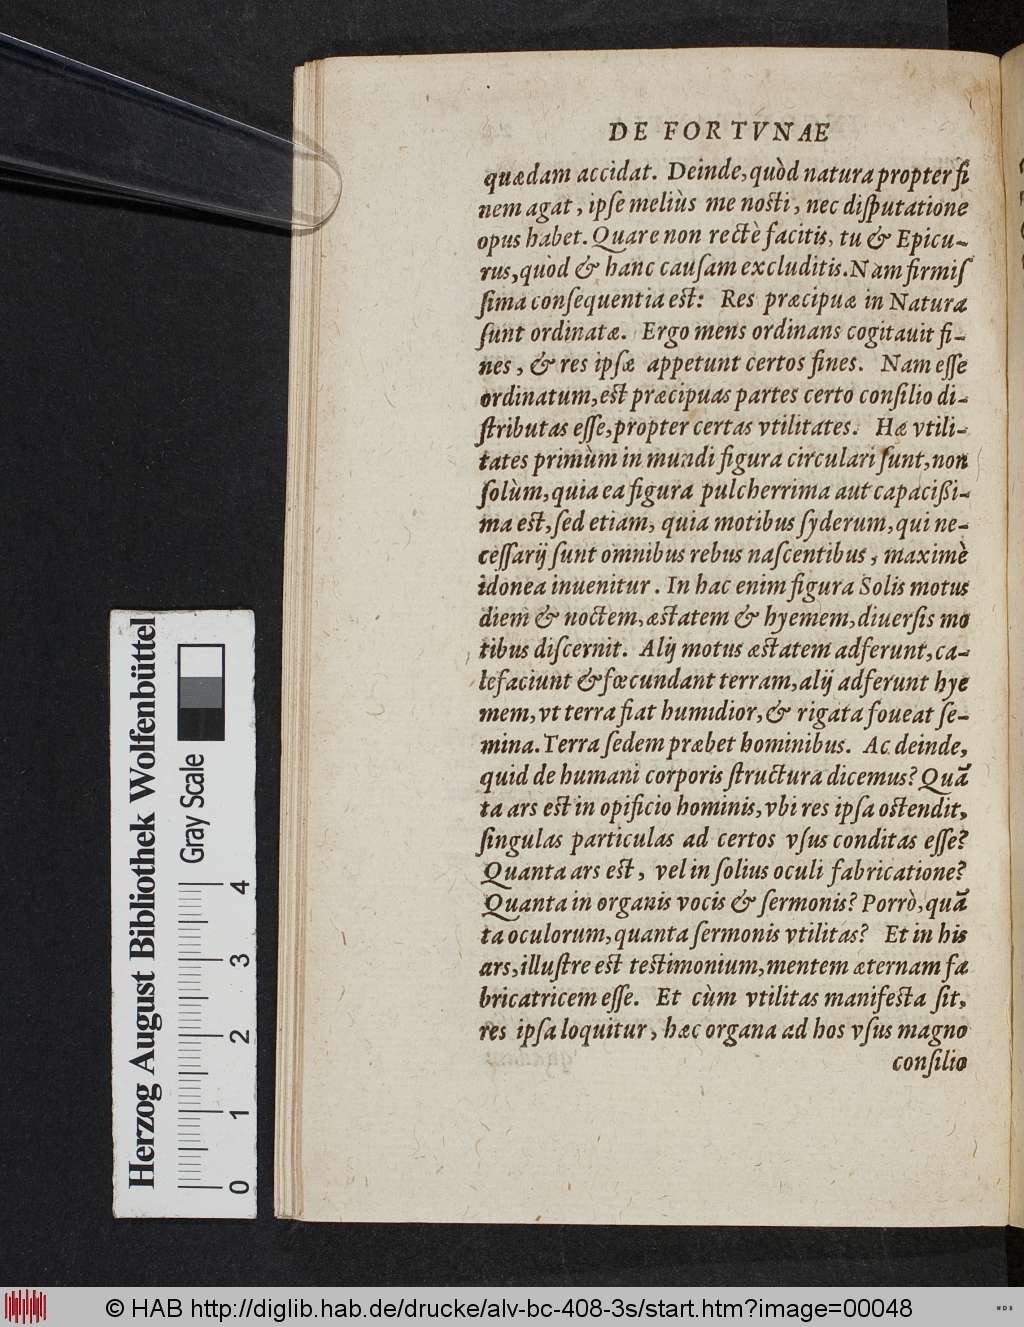 DE FORTVNAE
quædam accidat. Deinde, quòd natura propter fi
nem agat, ipſe meliùs me noſti, nec diſputatione
opus habet. Quare non rectè facitis, tu & Epicu-
rus, quòd & hanc cauſam excluditis. Nam firmiſ
ſima conſequentia eſt: Res præcipuæ in Natura
ſunt ordinatæ. Ergo mens ordinans cogitauit fi-
nes, & res ipſæ appetunt certos fines. Nam eſſe
ordinatum, eſt præcipuas partes certo conſilio di-
ſtributas eſſe, propter certas vtilitates. Hæ vtili-
tates primùm in mundi figura circulari ſunt, non
ſolùm, quia ea figura pulcherrima aut capacißi-
ma eſt, ſed etiam, quia motibus ſyderum, qui ne-
ceſſarij ſunt omnibus rebus naſcentibus, maximè
idonea inuenitur. In hac enim figura Solis motus
diem & noctem, æſtatem & hyemem, diuerſis mo
tibus diſcernit. Alij motus æſtatem adferunt, ca-
lefaciunt & fœcundant terram, alij adferunt hye
mem, vt terra fiat humidior, & rigata foueat ſe-
mina. Terra ſedem præbet hominibus. Ac deinde,
quid de humani corporis ſtructura dicemus? Quã
ta ars eſt in opificio hominis, vbi res ipſa oſtendit,
ſingulas particulas ad certos vſus conditas eſſe?
Quanta ars eſt, vel in ſolius oculi fabricatione?
Quanta in organis vocis & ſermonis? Porrò, quã
ta oculorum, quanta ſermonis vtilitas? Et in his
ars, illuſtre eſt teſtimonium, mentem æternam fa
bricatricem eſſe. Et cùm vtilitas manifeſta ſit,
res ipſa loquitur, hæc organa ad hos vſus magno
conſilio
Herzog August Bibliothek Wolfenbüttel
Gray Scale
0 1 2 3 4
© HAB http://diglib.hab.de/drucke/alv-bc-408-3s/start.htm?image=00048